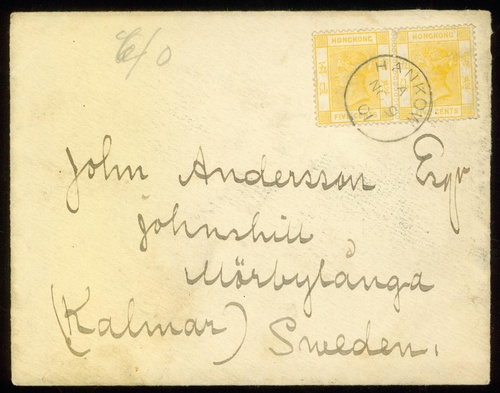 c/o
HONGKONG HONGKONG
FIVE CENTS
HANKOW
A
John Andersson Esqr
Johnshill,
Mörbylånga
(Kalmar) Sweden.